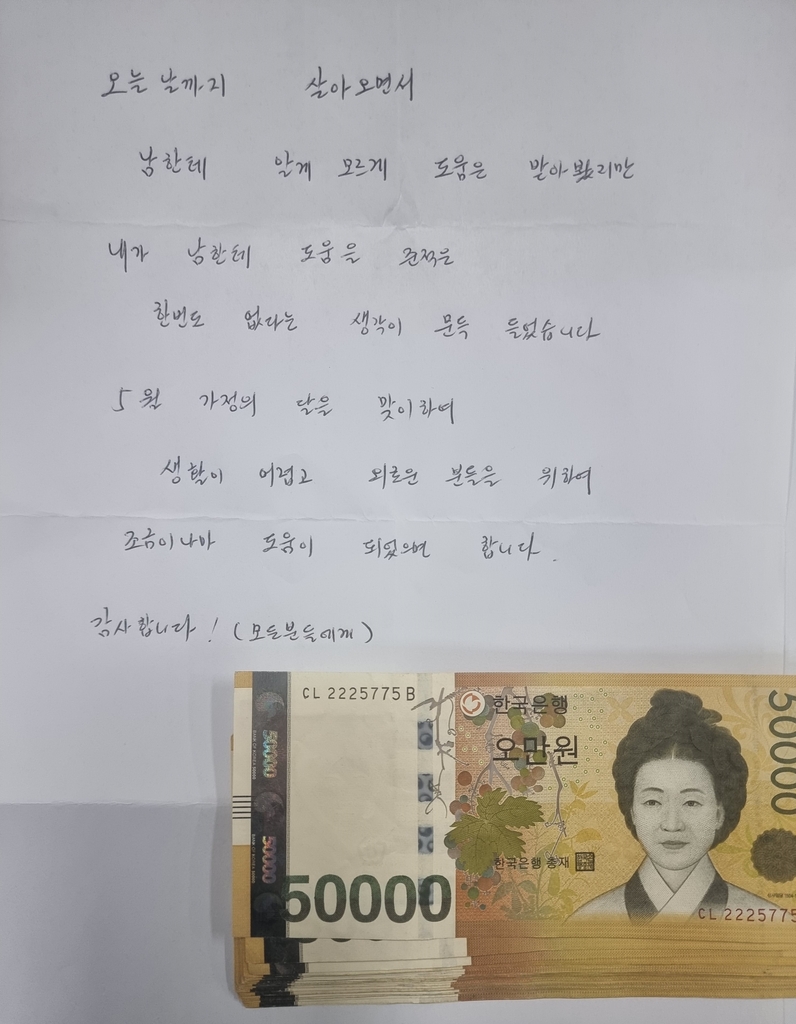 오늘 날까지 살아오면서
남한테 알게 모르게 도움은 받아봤지만
내가 남한테 도움을 준적은
한번도 없다는 생각이 문득 들었습니다
5월 가정의 달을 맞이하여
생활이 어렵고 외로운 분들을 위하여
조금이나마 도움이 되었으면 합니다.
감사합니다! (모든분들에게)
CL 2225775 B
한국은행
오만원
50000
50000
50000
한국은행 총재
50000
CL 2225775